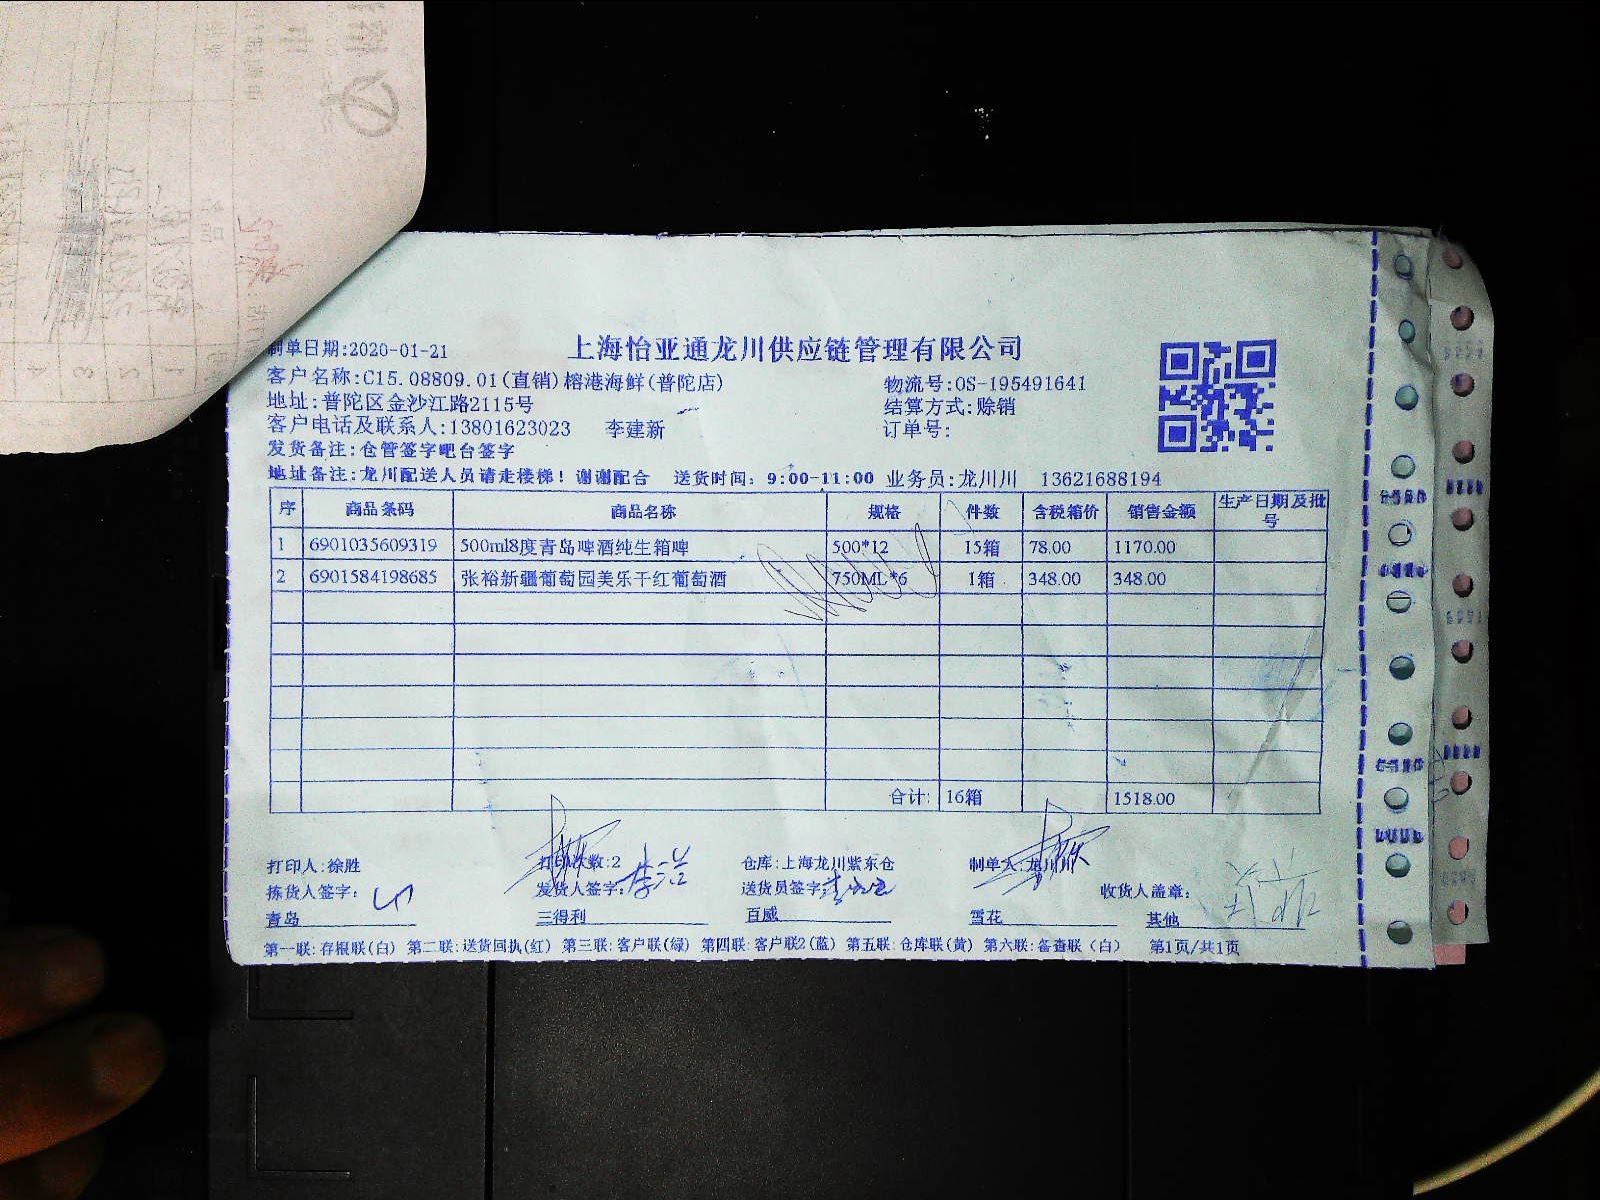 上海怡亚通龙川供应链管理有限公司
制单日期:2020-01-21
客户名称:C15.08809.01(直销)榕港海鲜(普陀店) 物流号:OS-195491641
地址:普陀区金沙江路2115号 结算方式:赊销
客户电话及联系人:13801623023 李建新 订单号:
发货备注:仓管签字吧台签字
地址备注:龙川配送人员请走楼梯！谢谢配合 送货时间: 9:00-11:00 业务员:龙川川 13621688194
序 商品条码 商品名称 规格 件数 含税箱价 销售金额 生产日期及批号
1 6901035609319 500ml8度青岛啤酒纯生箱啤 500*12 15箱 78.00 1170.00
2 6901584198685 张裕新疆葡萄园美乐干红葡萄酒 750ML*6 1箱 348.00 348.00
合计: 16箱 1518.00
打印人:徐胜 打印次数:2 仓库:上海龙川紫东仓 制单人:龙川川
拣货人签字: 发货人签字: 送货员签字: 收货人盖章:
青岛 三得利 百威 雪花 其他
第一联:存根联(白) 第二联:送货回执(红) 第三联:客户联(绿) 第四联:客户联2(蓝) 第五联:仓库联(黄) 第六联:备查联（白） 第1页/共1页